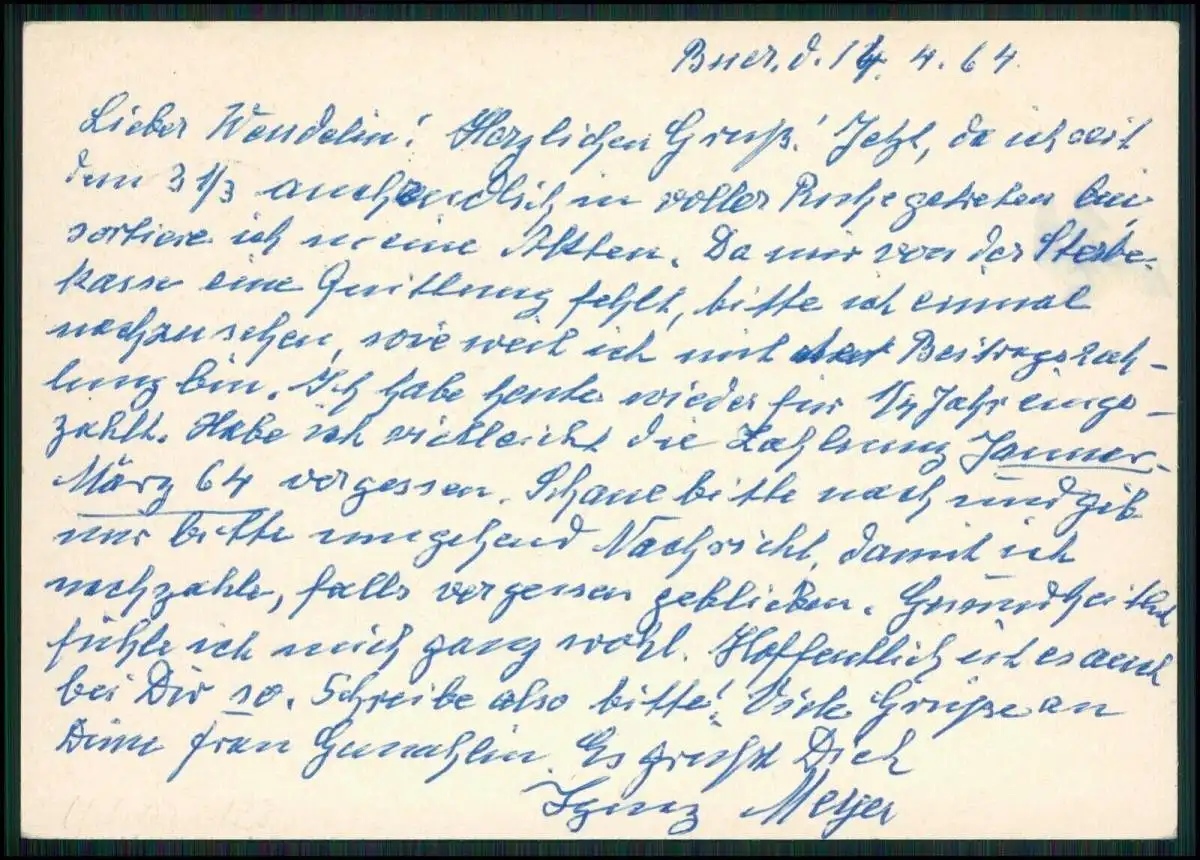 Buer. d. 14. 4. 64.
Lieber Wendelin! Herzlichen Gruß! Jetzt, da ich seit
dem 31/3 auch endlich in voller Ruhe getreten bin,
sortiere ich meine Akten. Da mir von der Sterbe-
kasse eine Quittung fehlt, bitte ich einmal
nachzusehen, wie weit ich mit der Beitragszah-
lung bin. Ich habe heute wieder für 1/4 Jahr einge-
zahlt. Habe ich vielleicht die Zahlung Januar-
März 64 vergessen. Schaue bitte nach und gib
mir bitte umgehend Nachricht, damit ich
nachzahle, falls vergessen geblieben. Gesundheitlich
fühle ich mich ganz wohl. Hoffentlich ist es auch
bei Dir so. Schreibe also bitte! Viele Grüße an
Deine Frau Gemahlin. Es grüßt Dich
Ignaz Meyer